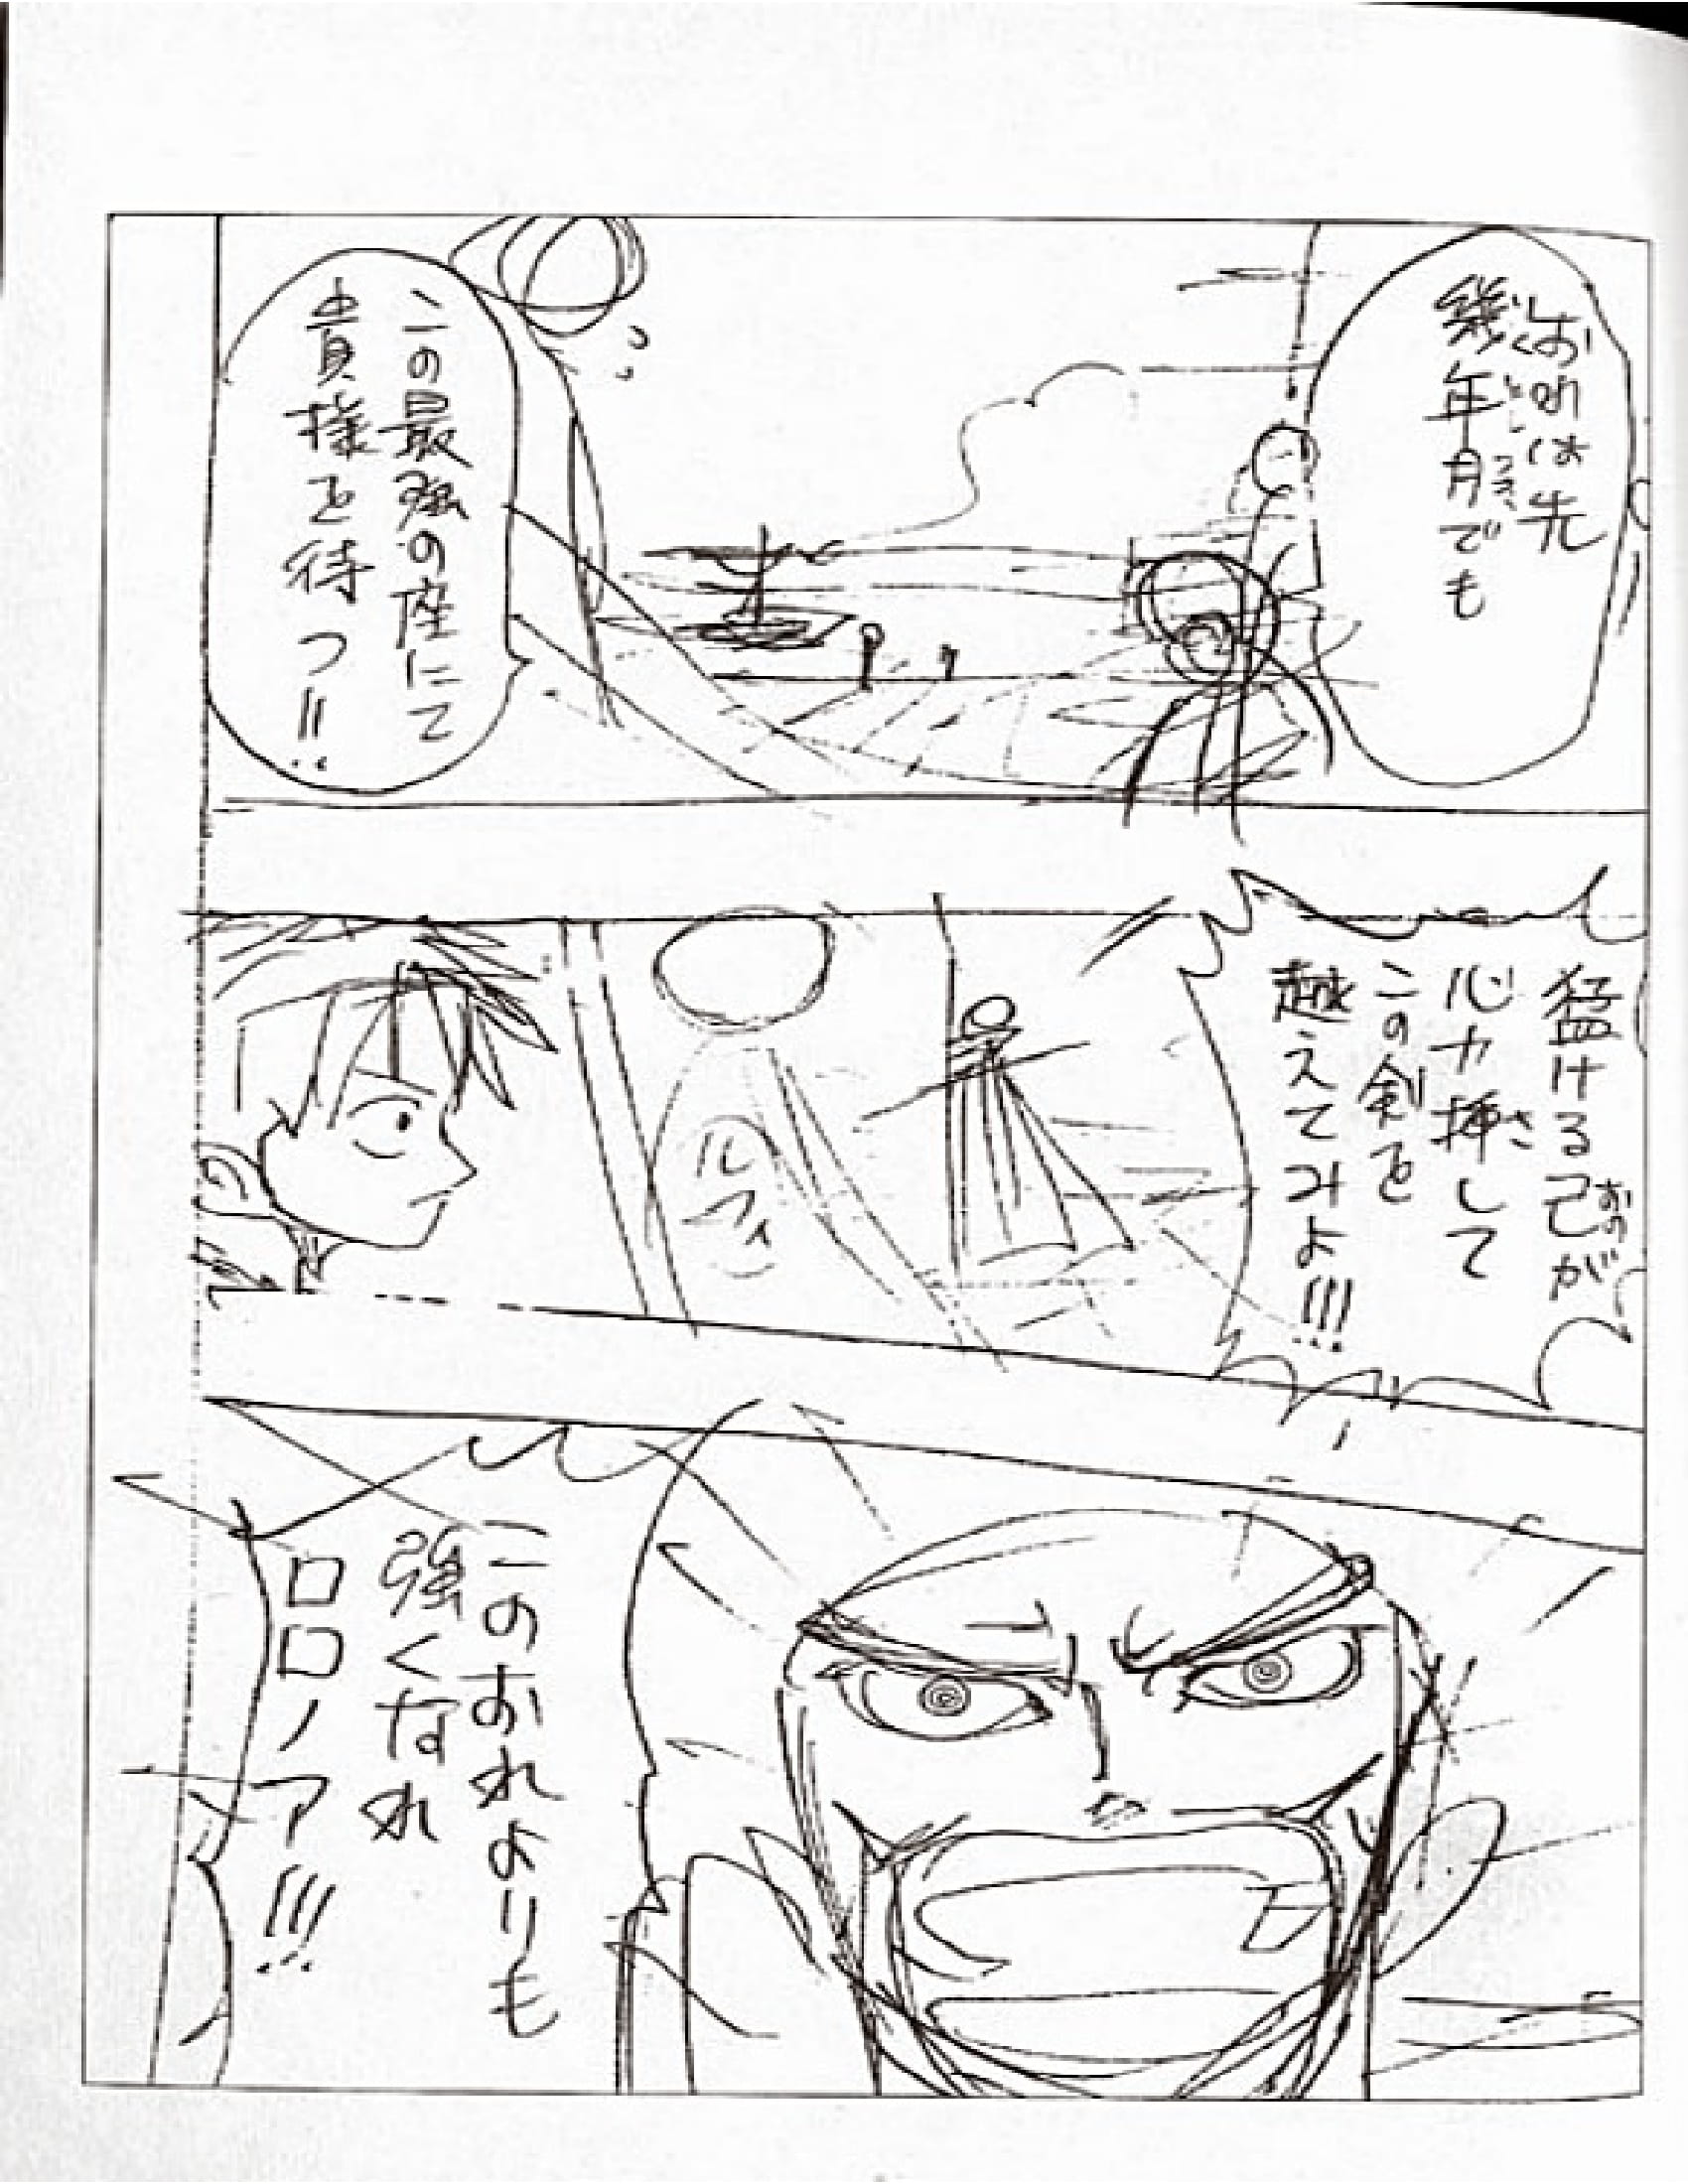 おれは先
幾年月でも
いくとしつき
この最強の座にて
貴様を待つ!!
猛ける己が
おの
心力挿して
さ
この剣を
越えてみよ!!!
ルフィ
このおれよりも
強くなれ
ロロノア!!!